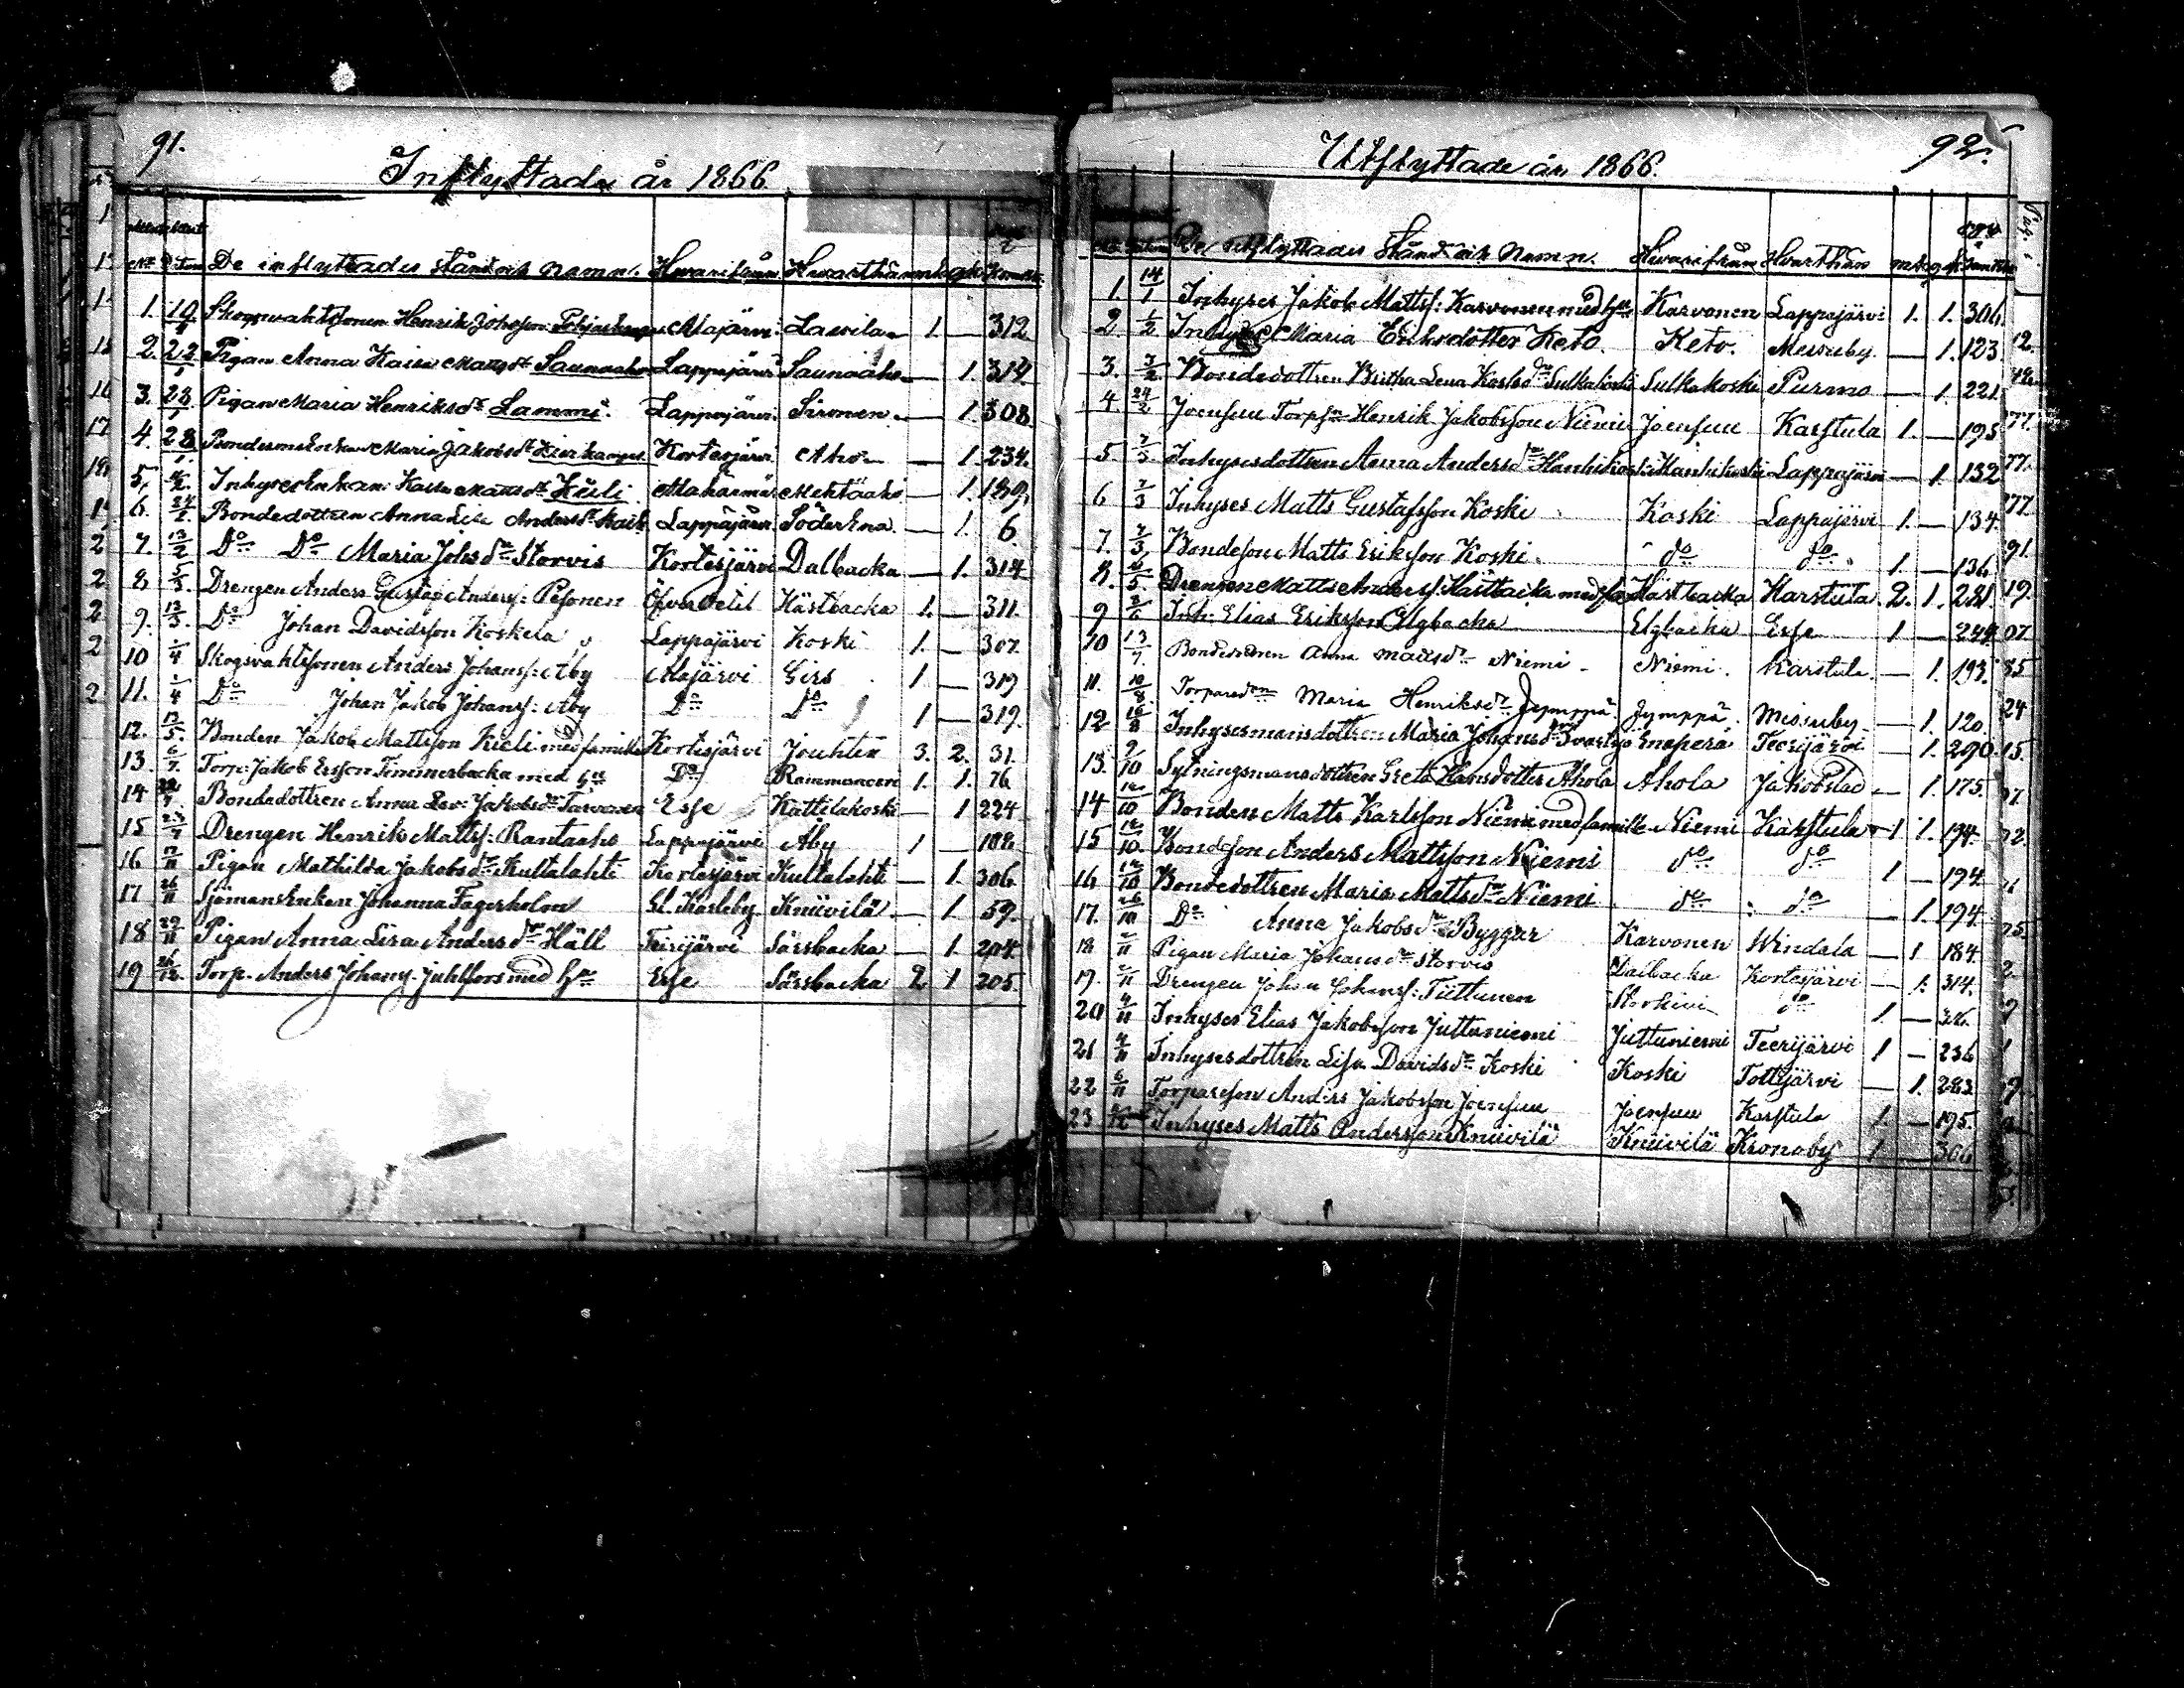 91.
Inflyttade år 1866
De inflyttades Stånd och namn. Hvarifrån Hvarthän
1. 19/1 Skogsvaktssonen Henrik Johsson Alajärvi Lassila 1 — 312
2. 22/1 Pigan Anna Kaisa Mattsdr Saunaaho Lappajärvi Saunaaho — 1. 314
3. 23/1 Pigan Maria Henriksdr Lammi. Lappajärvi Sironen — 1. 308
4. 28/1 Maria Jakobsdr Kortesjärvi Aho — 1. 234.
5. Inhysesenkan Kaisa Mattsdr Keili — 1. 189.
6. 24/2 Bondedottren Anna Lisa Andersdr Lappajärvi Söderena — 1. 6.
7. 13/2 Do Do Maria Johsdr Storvis Kortesjärvi Dalbacka — 1. 314
8. 5/3 Drengen Anders Gustaf Anderss: Pesonen Öfvervetil Hästbacka 1. — 311.
9. 13/3. Do Johan Davidsson Koskela Lappajärvi Koski 1. — 307.
10 1/4 Skogsvaktssonen Anders Johanss: Aby Alajärvi Girs 1. — 319
11. 1/4 Do Johan Jakob Johanss: Aby Do Do 1 — 319.
12. 13/5. Bonden Jakob Mattsson Kieli med familie Kortesjärvi Jouhten 3. 2. 31.
13. 6/7. Torp: Jakob Ersson Timmerbacka med hu Do 1. 1. 76
14 Bondedottren Anna Lov: Jakobsdr Tarvonen Esse Kattilakoski — 1 224
15 23/7 Drengen Henrik Mattss: Rantaaho Lappajärvi Aby 1 —
16 12/11 Pigan Mathilda Jakobsdr Kultalahti Kortesjärvi Kultalahti — 1. 306
17 26/11 Sjömansenkan Johanna Fagerholm Gl. Karleby Knuivilä — 1 59.
18 29/11 Pigan Anna Lisa Andersdr Häll Terijärvi Särsbacka — 1. 204.
19 26/12. Torp. Anders Johans. Juhlfors med hu Esse Särsbacka 2 1 205.
92.
Utflyttade år 1866.
De utflyttades Stånd och Namn. Hvarifrån Hvarthän
1. 14/1 Inhyses Jakob Mattss: Karvonen med hu Karvonen Lappajärvi 1. 1. 306.
2. 1/2 Inhyses Maria Eriksdotter Keto. Keto. Messuby. — 1. 123.
3. 7/2 Bondedottren Britha Lena Sulkakoski Sulkakoski Purmo — 1. 221.
4. 24/2 Joensuu Torpsn Henrik Jakobsson Niemi Joensuu Karstula 1. — 195
5. 7/3 Inhysesdottren Anna Andersdr Hanhikoski Hanhikoski Lappajärvi — 1. 132
6 7/3 Inhyses Matts Gustafsson Koski Koski Lappajärvi 1. — 134.
7. 7/3 Bondeson Matts Eriksson Koski. do do. 1. — 136.
8. 6/5 Drengen Matts Anderss: Hästbacka med fa Hästbacka Karstula 2. 1. 281.
9 Inh: Elias Eriksson Elgbacka Elgbacka Esse 1 — 249.
10 13/7. Anna Mattsdr Niemi Niemi. Karstula — 1. 193.
11. 10/8 Maria Henriksdr Jymppä Jymppä. Messuby — 1. 120.
12 16/8 Inhysesmansdottren Maria Johansdr Enäperä Teerijärvi — 1. 290
13. 9/10 Sytningsmansdottren Greta Hansdotter Ahola Ahola Jakobstad — 1. 175.
14 12/10 Bonden Matts Karlsson Niemi med famille Niemi Karstula 1 1. 194.
15 12/10. Bondeson Anders Mattsson Niemi do do 1 — 194
16 12/10 Bondedottren Maria Mattsdr Niemi do do — 1. 194.
17. 26/10 Do Anna Jakobsdr Byggar Karvonen Windala — 1 184.
18 2/11 Pigan Maria Johansdr Storvis Dalbacka Kortesjärvi — 1. 314.
19. 2/11 Drengen Johan Johanss: Tiittunen do 1. —
20 4/11 Inhyses Elias Jakobsson Juttuniemi Juttuniemi Teerijärvi 1 — 236
21 4/11 Inhysesdottren Lisa Davidsdr Koski Koski — 1. 283.
22 6/11 Torpareson Anders Jakobsson Joensuu Joensuu Karstula 1 — 195.
23 Inhyses Matts Andersson Knuivilä Knuivilä Kronoby 1 — 306